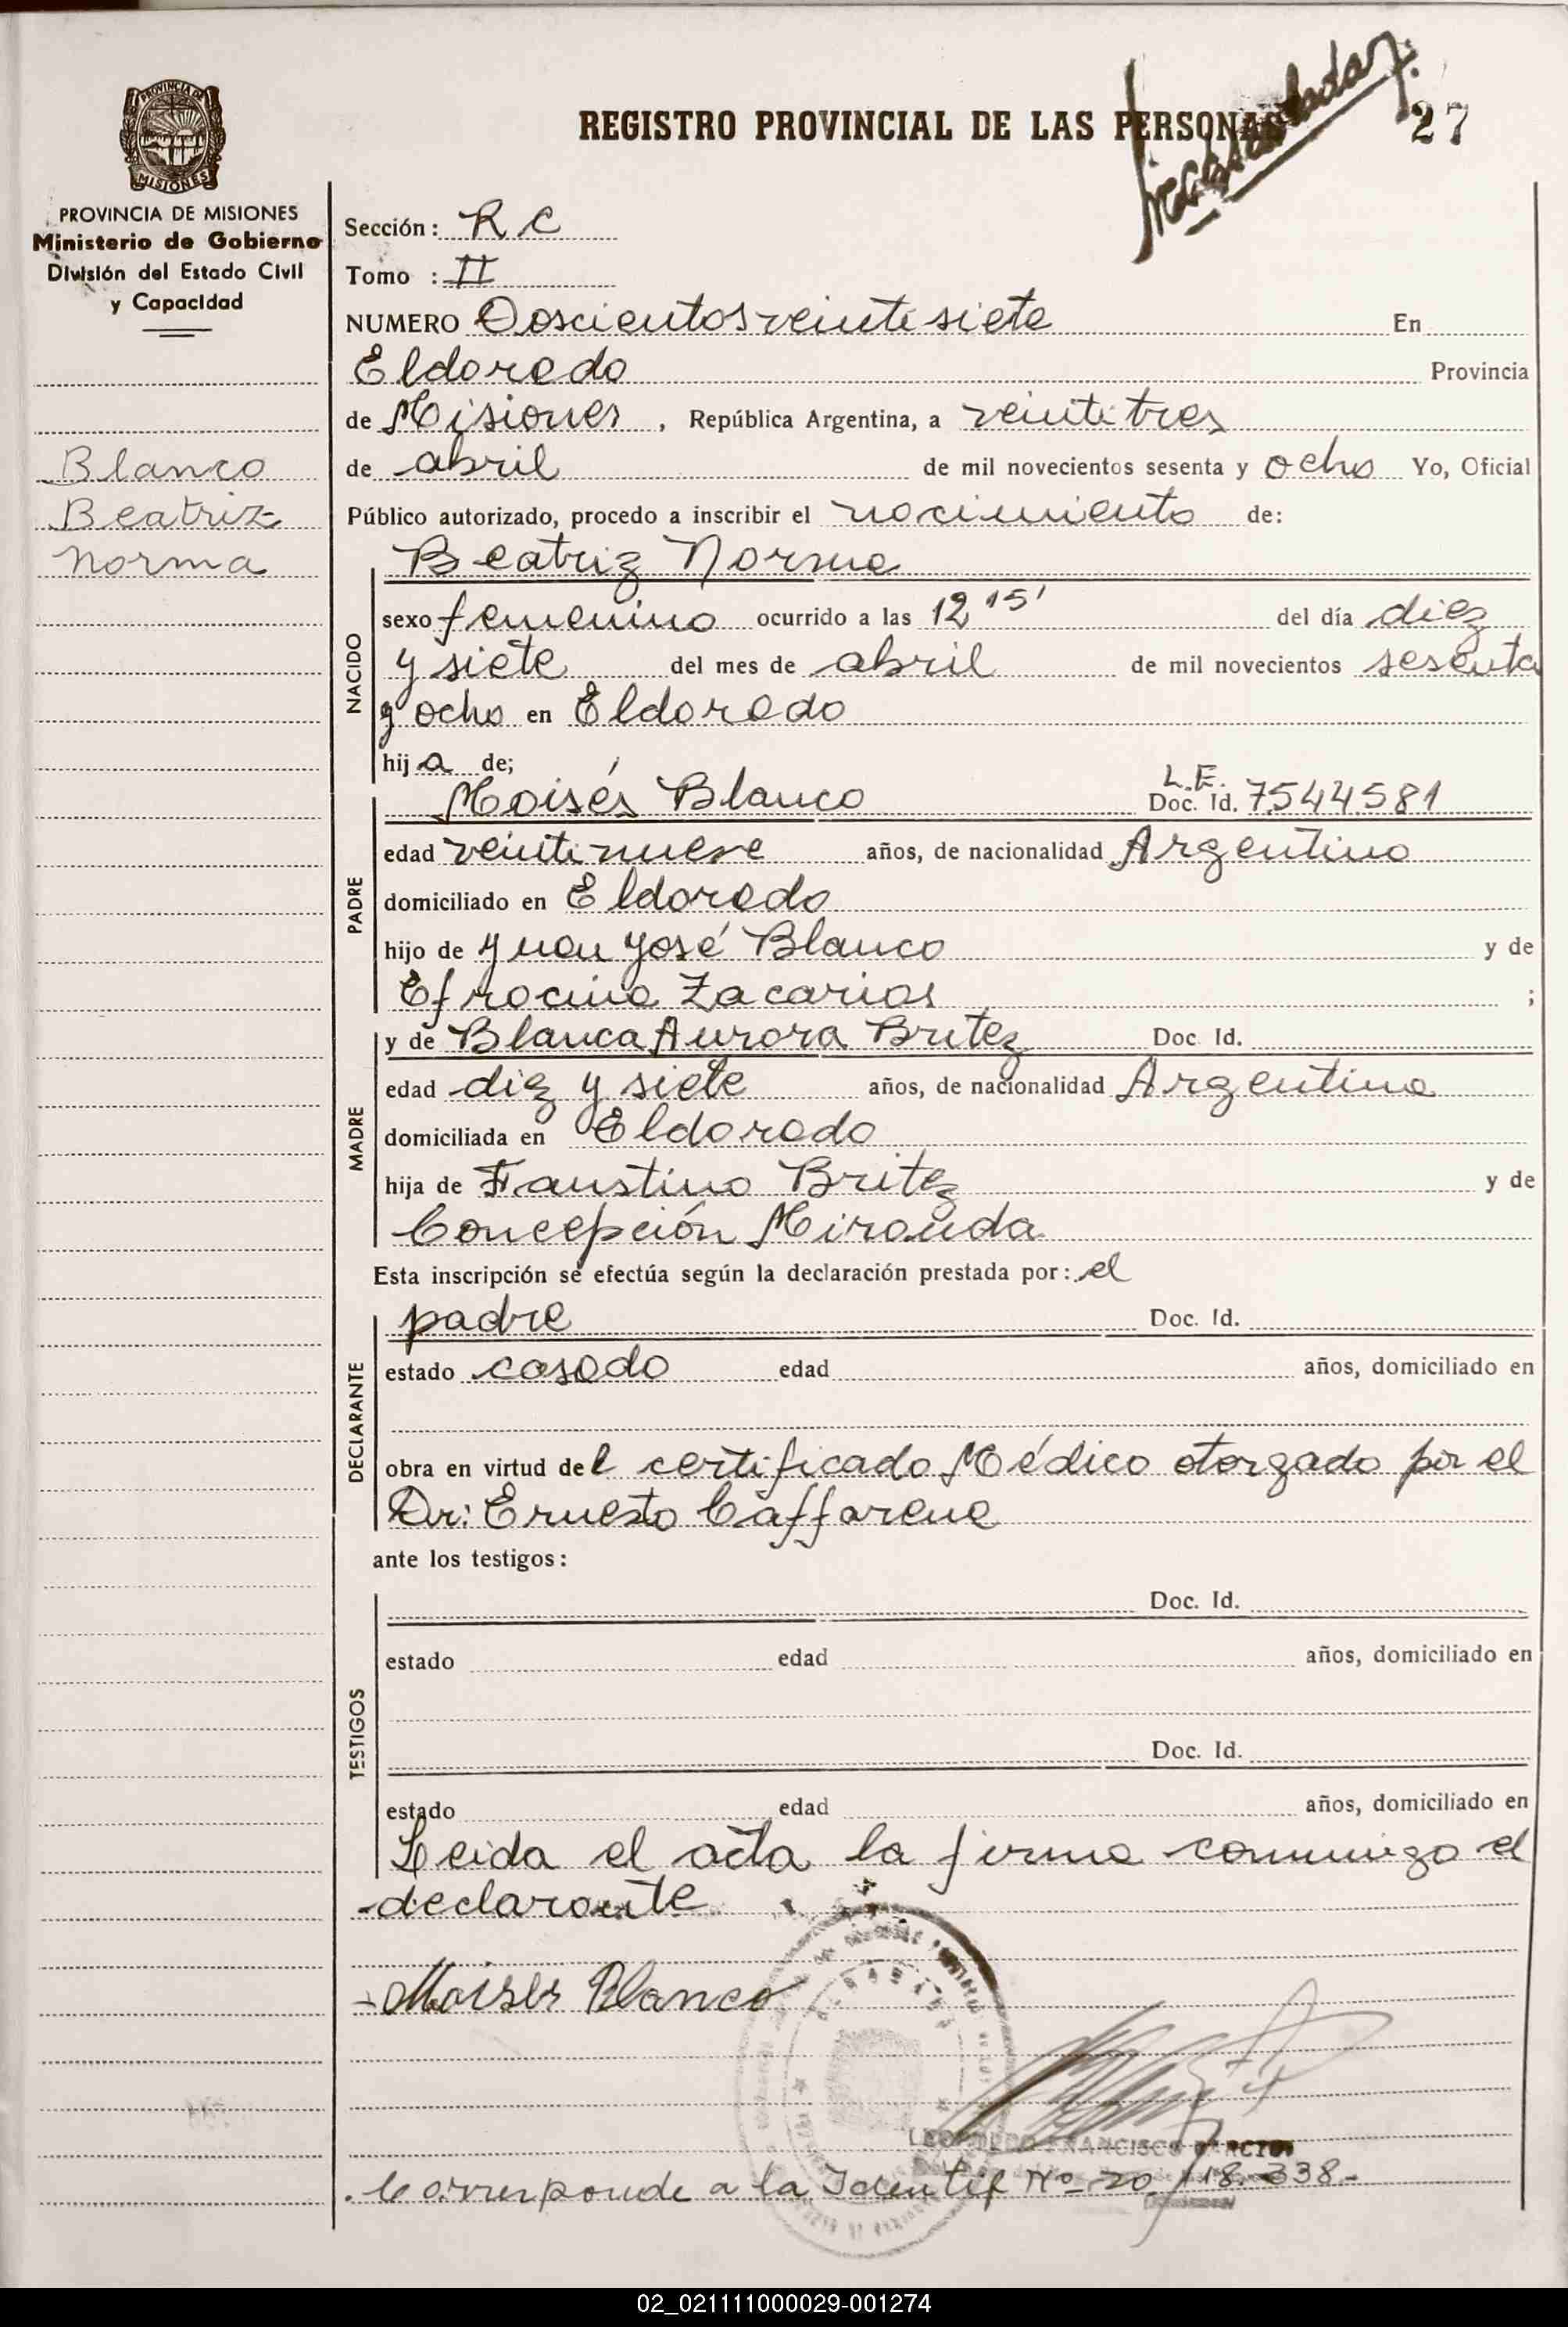 REGISTRO PROVINCIAL DE LAS PERSONAS
27
PROVINCIA DE
MISIONES
PROVINCIA DE MISIONES
Ministerio de Gobierno
División del Estado Civil
y Capacidad
Blanco
Beatriz
Norma
Sección: R C
Tomo : II
NUMERO Doscientos veinte siete En
Eldorado Provincia
de Misiones, República Argentina, a veinti tres
de abril de mil novecientos sesenta y ocho Yo, Oficial
Público autorizado, procedo a inscribir el nacimiento de:
Beatriz Norma
NACIDO
sexo femenino ocurrido a las 12 15' del día diez
y siete del mes de abril de mil novecientos sesenta
y ocho en Eldorado
hija de;
PADRE
Moisés Blanco L.E. Doc. Id. 7544581
edad veintinueve años, de nacionalidad Argentino
domiciliado en Eldorado
hijo de Juan José Blanco y de
Efrocina Zacarias ;
MADRE
y de Blanca Aurora Britez Doc. Id.
edad diez y siete años, de nacionalidad Argentina
domiciliada en Eldorado
hija de Faustino Britez y de
Concepción Miranda
Esta inscripción se efectúa según la declaración prestada por: el
DECLARANTE
padre Doc. Id.
estado casado edad años, domiciliado en
obra en virtud del certificado Médico otorgado por el
Dr: Ernesto Caffarena
ante los testigos:
TESTIGOS
Doc. Id.
estado edad años, domiciliado en
Doc. Id.
estado edad años, domiciliado en
Leida el acta la firma conmigo el
declarante
Moises Blanco
FRANCISCO
Corresponde a la Identif Nº 20.118.338-
02_021111000029-001274